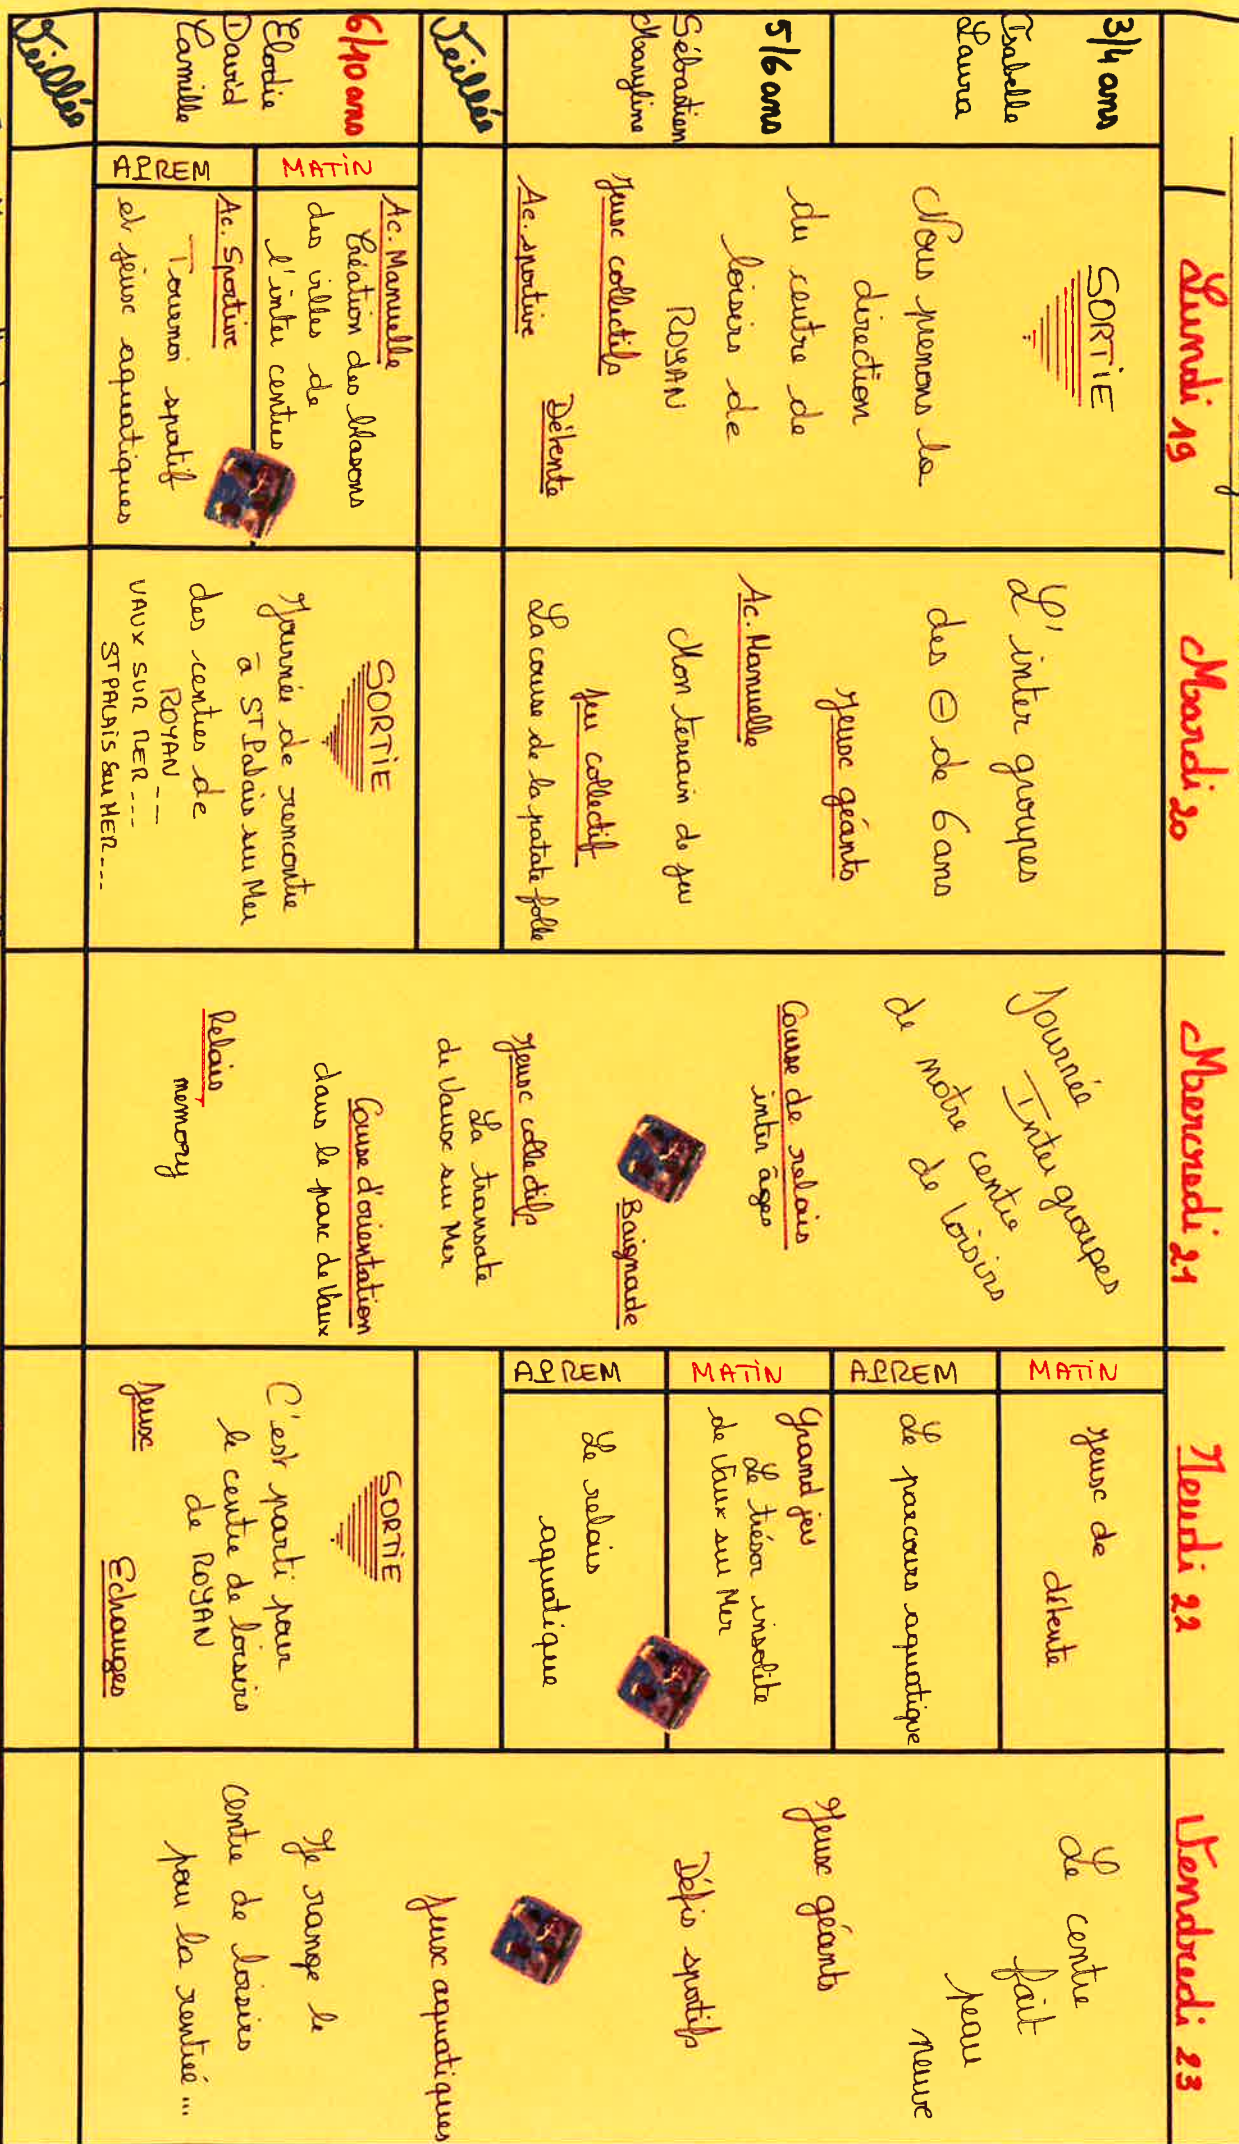 Lundi 19
Mardi 20
Mercredi 21
Jeudi 22
Vendredi 23
3/4 ans
Isabelle
Laura
5/6 ans
Sébastien
Maryline
Veillée
6/10 ans
Elodie
David
Camille
Veillée
SORTIE
Nous prenons la
direction
du centre de
loisirs de
ROYAN
Jeux collectifs
Ac. sportive
Détente
MATIN
Ac. Manuelle
Création des blasons
des villes de
l'inter centres
APREM
Ac. Sportive
Tournoi sportif
et jeux aquatiques
L'inter groupes
des ⊖ de 6 ans
Jeux géants
Ac. Manuelle
Mon terrain de jeu
Jeu collectif
La course de la patate folle
SORTIE
Journée de rencontre
à ST Palais sur Mer
des centres de
ROYAN ---
VAUX SUR MER ---
ST PALAIS Sur MER ---
Journée
Inter groupes
de notre centre
de loisirs
Course de relais
inter âges
Baignade
Jeux collectifs
La transate
de Vaux sur Mer
Course d'orientation
dans le parc de Vaux
Relais
memory
MATIN
Jeux de
détente
APREM
Le parcours aquatique
MATIN
Grand jeu
Le trésor insolite
de Vaux sur Mer
APREM
Le relais
aquatique
SORTIE
C'est parti pour
le centre de loisirs
de ROYAN
Jeux
Echanges
Le centre
fait
peau
neuve
Jeux géants
Défis sportifs
Jeux aquatiques
Je range le
centre de loisirs
pour la rentrée...